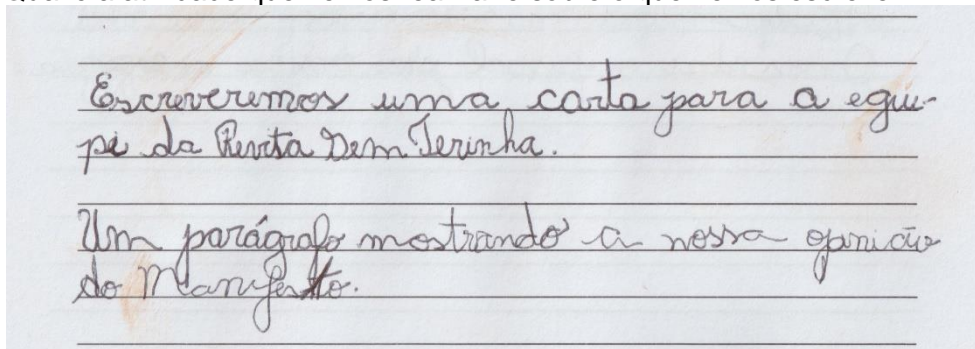 Escreveremos uma carta para a equi-
pe da Revita Sem Terinha.
Um parágrafo mostrando a nossa opinião
do Manifesto.